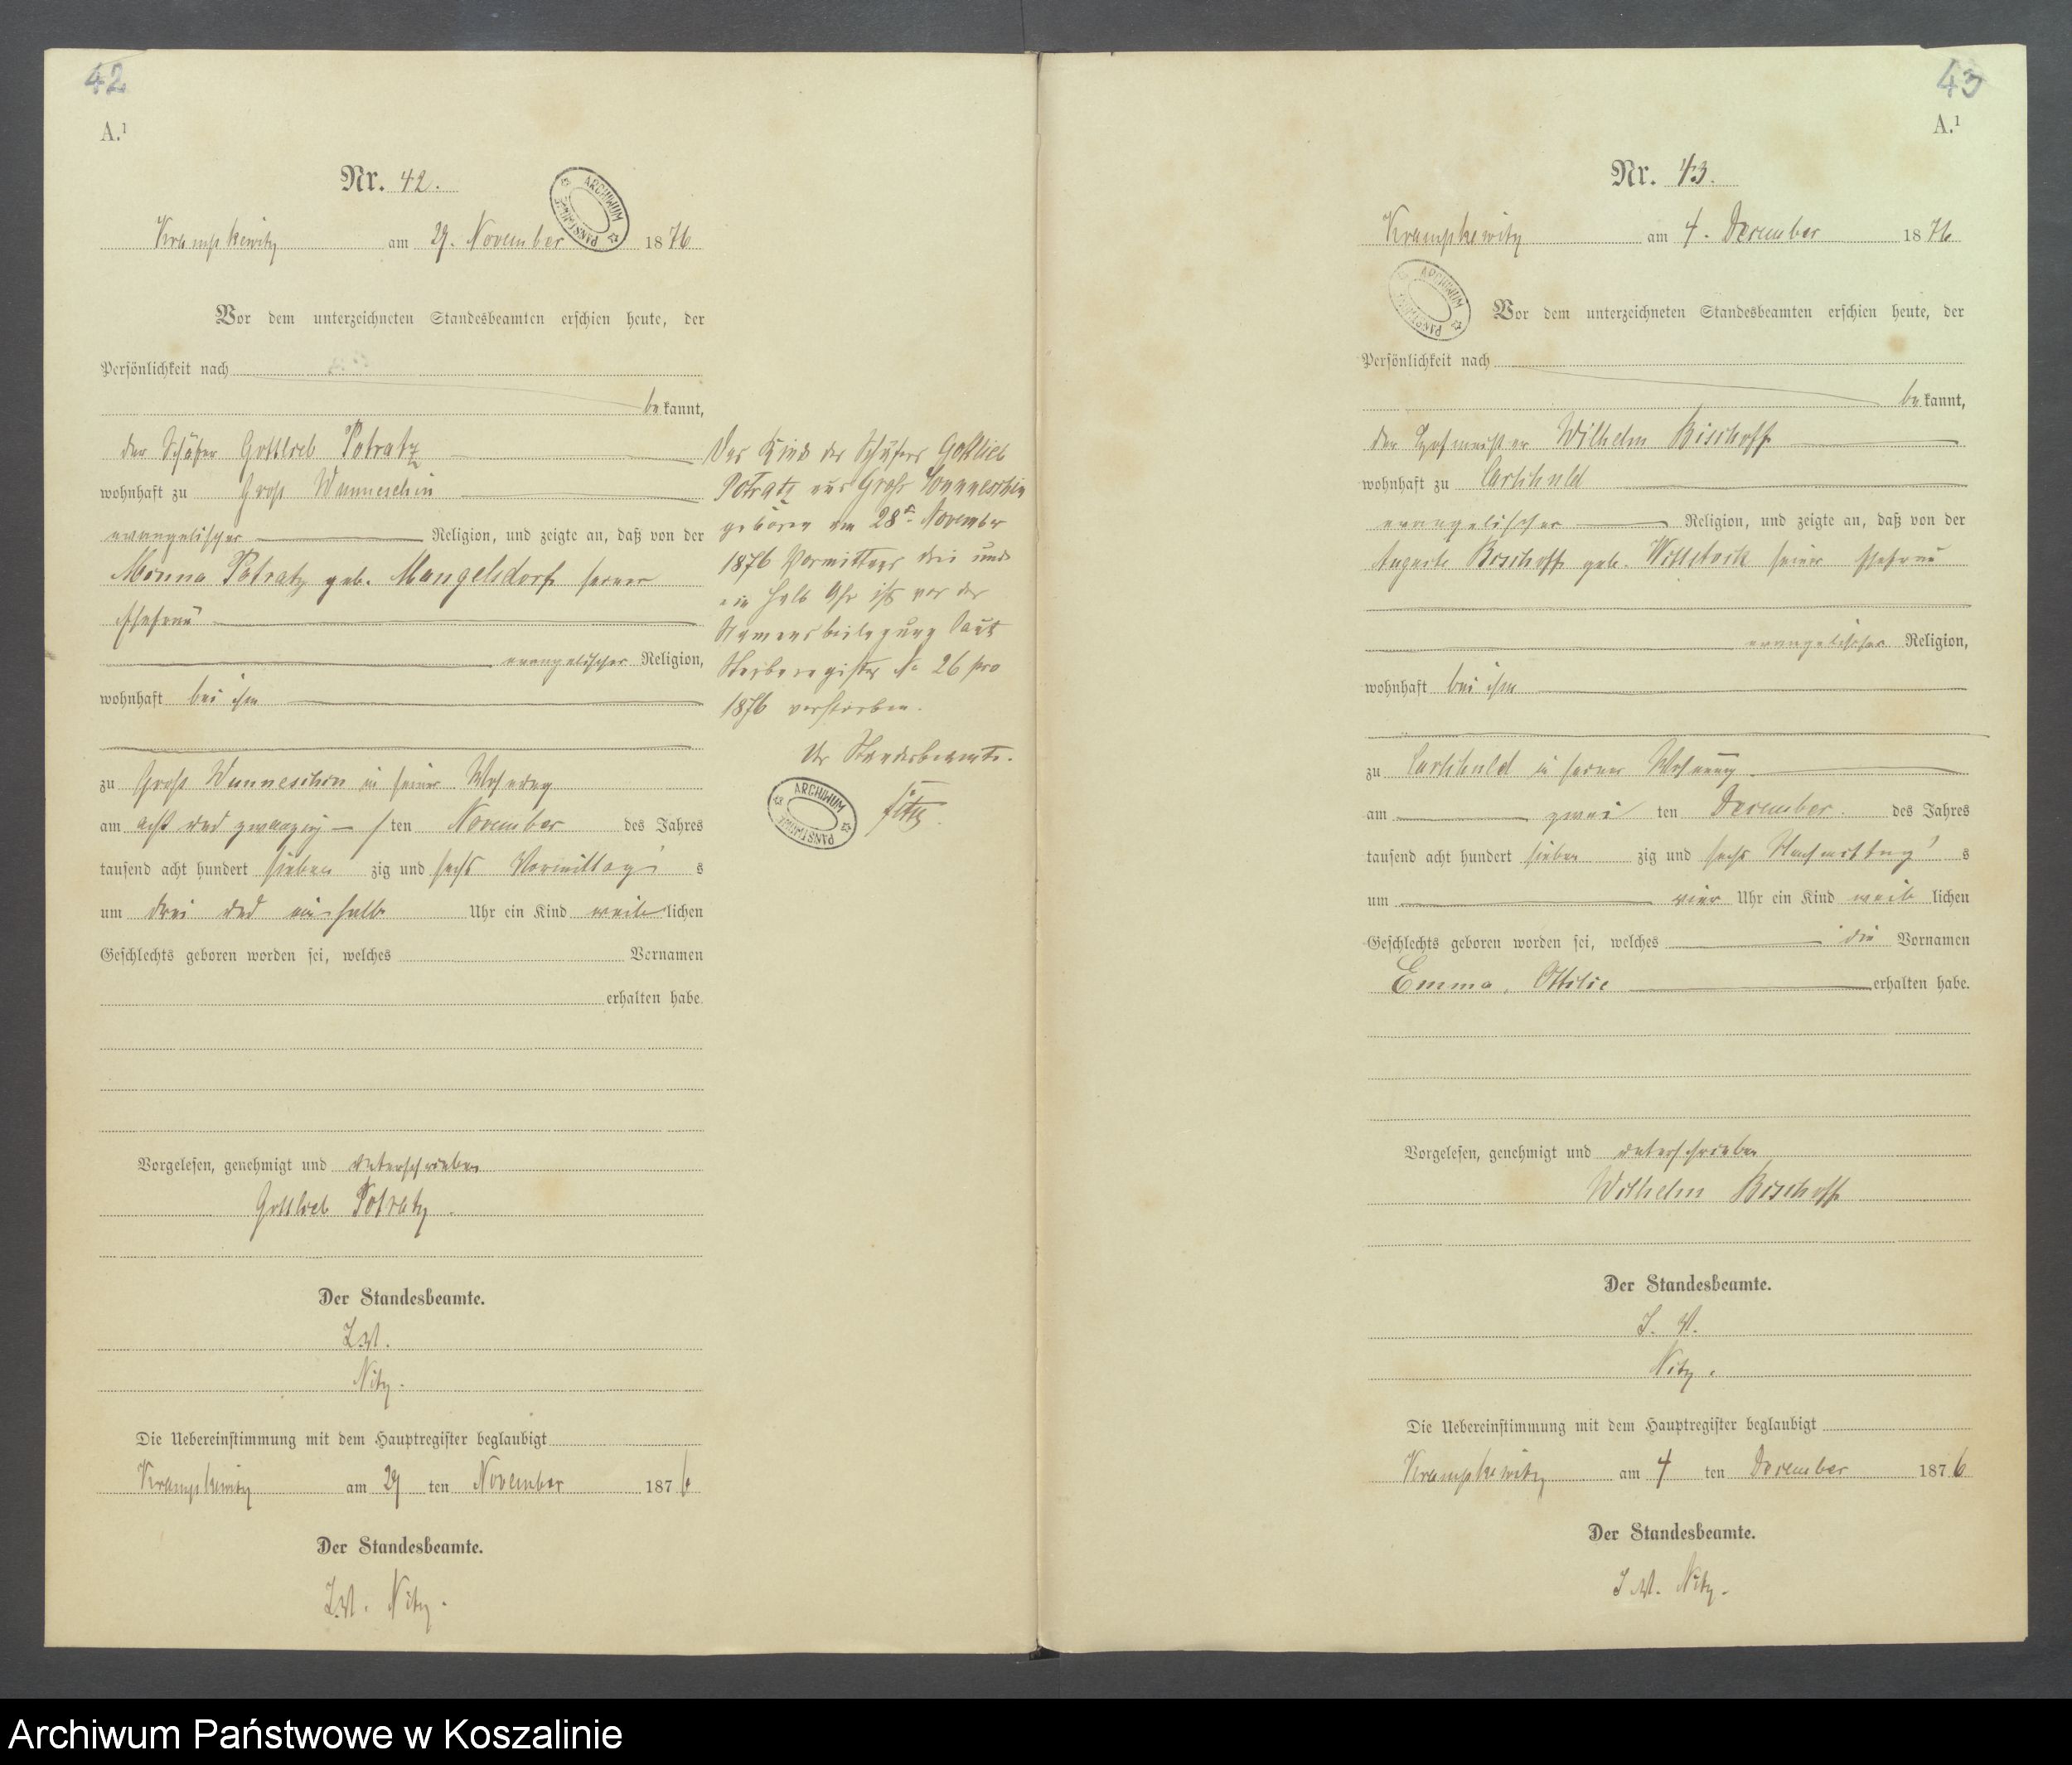 42
A.¹
Nr. 42.
Krampkewitz am 29. November 1876
ARCHIWUM PAŃSTWOWE
Vor dem unterzeichneten Standesbeamten erschien heute, der
Persönlichkeit nach
bekannt,
der Schäfer Gottlieb Potratz
wohnhaft zu Groß Wunneschin
evangelischer Religion, und zeigte an, daß von der
Minna Potratz geb. Mangelsdorf seiner
Ehefrau
evangelischer Religion,
wohnhaft bei ihm
zu Groß Wunneschin in seiner Wohnung
am acht und zwanzig ten November des Jahres
tausend acht hundert sieben zig und sechs Vormittag s
um drei und ein halb Uhr ein Kind weiblichen
Geschlechts geboren worden sei, welches Vornamen
erhalten habe.
Vorgelesen, genehmigt und unterschrieben
Gottlieb Potratz.
Der Standesbeamte.
I.V.
Nitz.
Die Uebereinstimmung mit dem Hauptregister beglaubigt
Krampkewitz am 29 ten November 1876
Der Standesbeamte.
I.V. Nitz.
Das Kind des Schäfers Gottlieb
Potratz aus Groß Wunneschin
geboren am 28t November
1876 Vormittags drei und
ein halb Uhr ist vor der
Namensbeilegung laut
Sterberegister No 26 pro
1876 verstorben.
Der Standesbeamte.
ARCHIWUM PAŃSTWOWE
43
A.¹
Nr. 43.
Krampkewitz am 4. December 1876
ARCHIWUM PAŃSTWOWE
Vor dem unterzeichneten Standesbeamten erschien heute, der
Persönlichkeit nach
bekannt,
der Hofmeister Wilhelm Bischoff
wohnhaft zu Carlshuld
evangelischer Religion, und zeigte an, daß von der
Auguste Bischoff geb. Wittstock seiner Ehefrau
evangelischer Religion,
wohnhaft bei ihm
zu Carlshuld in seiner Wohnung
am zwei ten December des Jahres
tausend acht hundert sieben zig und sechs Nachmittag s
um vier Uhr ein Kind weib lichen
Geschlechts geboren worden sei, welches die Vornamen
Emma, Ottilie erhalten habe.
Vorgelesen, genehmigt und unterschrieben
Wilhelm Bischoff
Der Standesbeamte.
I. V.
Nitz.
Die Uebereinstimmung mit dem Hauptregister beglaubigt
Krampkewitz am 4 ten December 1876
Der Standesbeamte.
I.V. Nitz.
Archiwum Państwowe w Koszalinie